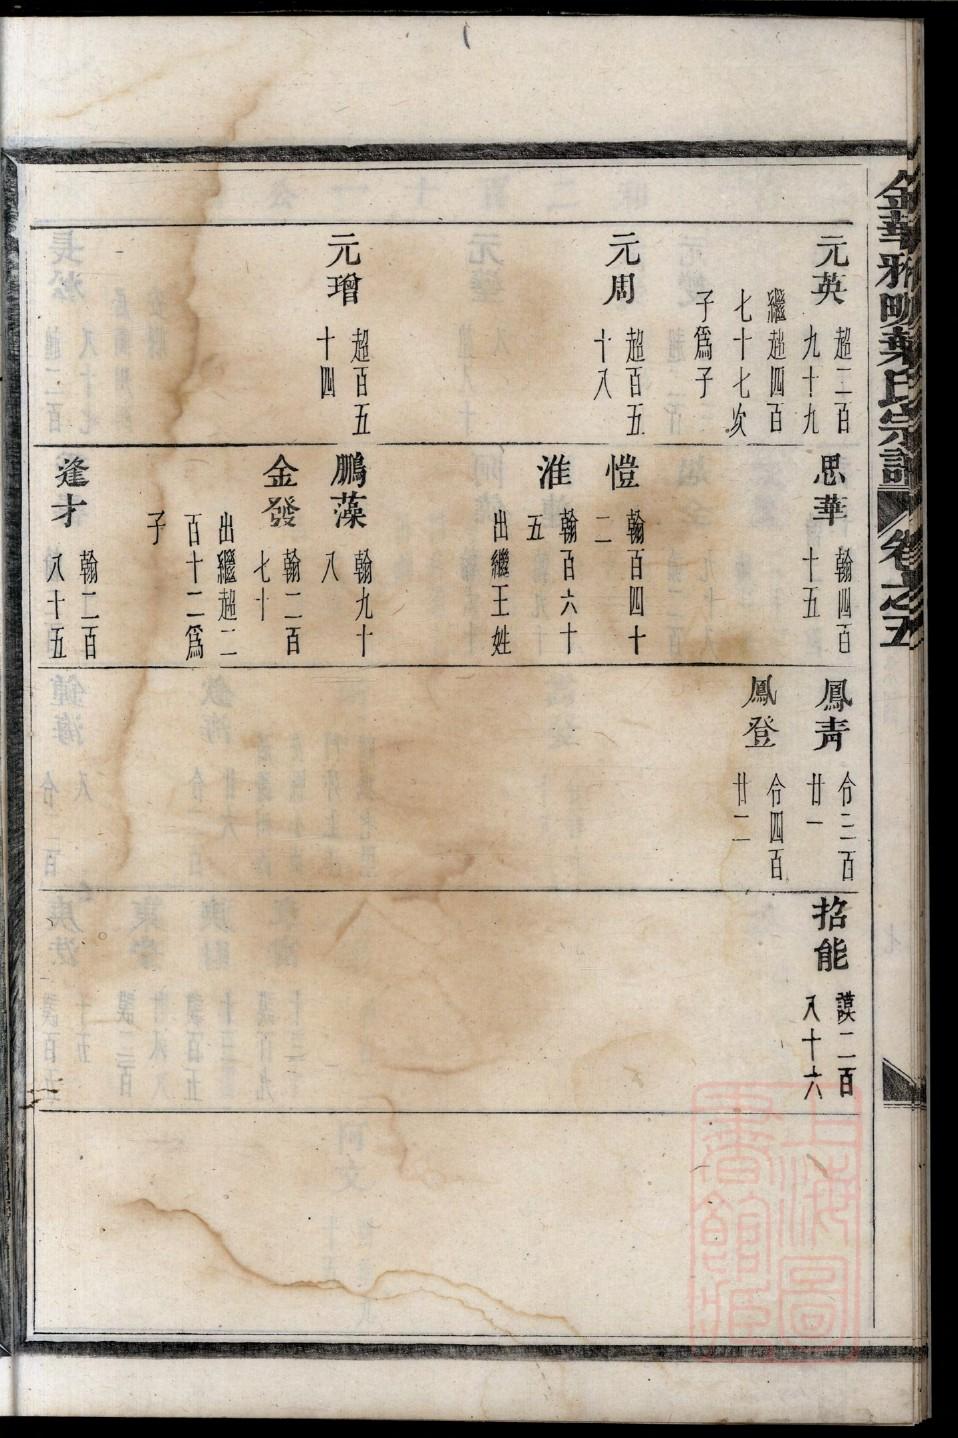 金華雅畈葉氏宗譜 卷之五
元英
超二百
九十九
繼超四百
七十七次
子爲子
元周
超百五
十八
元璔
超百五
十四
思華
翰四百
十五
愷
翰百四十
二
淮
翰百六十
五
出繼王姓
鵬藻
翰九十
八
金發
翰二百
七十
出繼超二
百十二爲
子
逢才
翰二百
八十五
鳳靑
合三百
廿一
鳳登
合四百
廿二
招能
謨二百
八十六
上海圖
書館藏